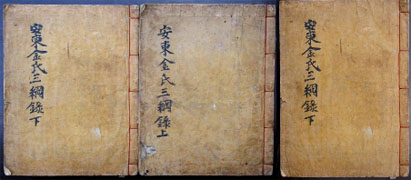 安東金氏三綱錄下
安東金氏三綱錄上
安東金氏三綱錄下